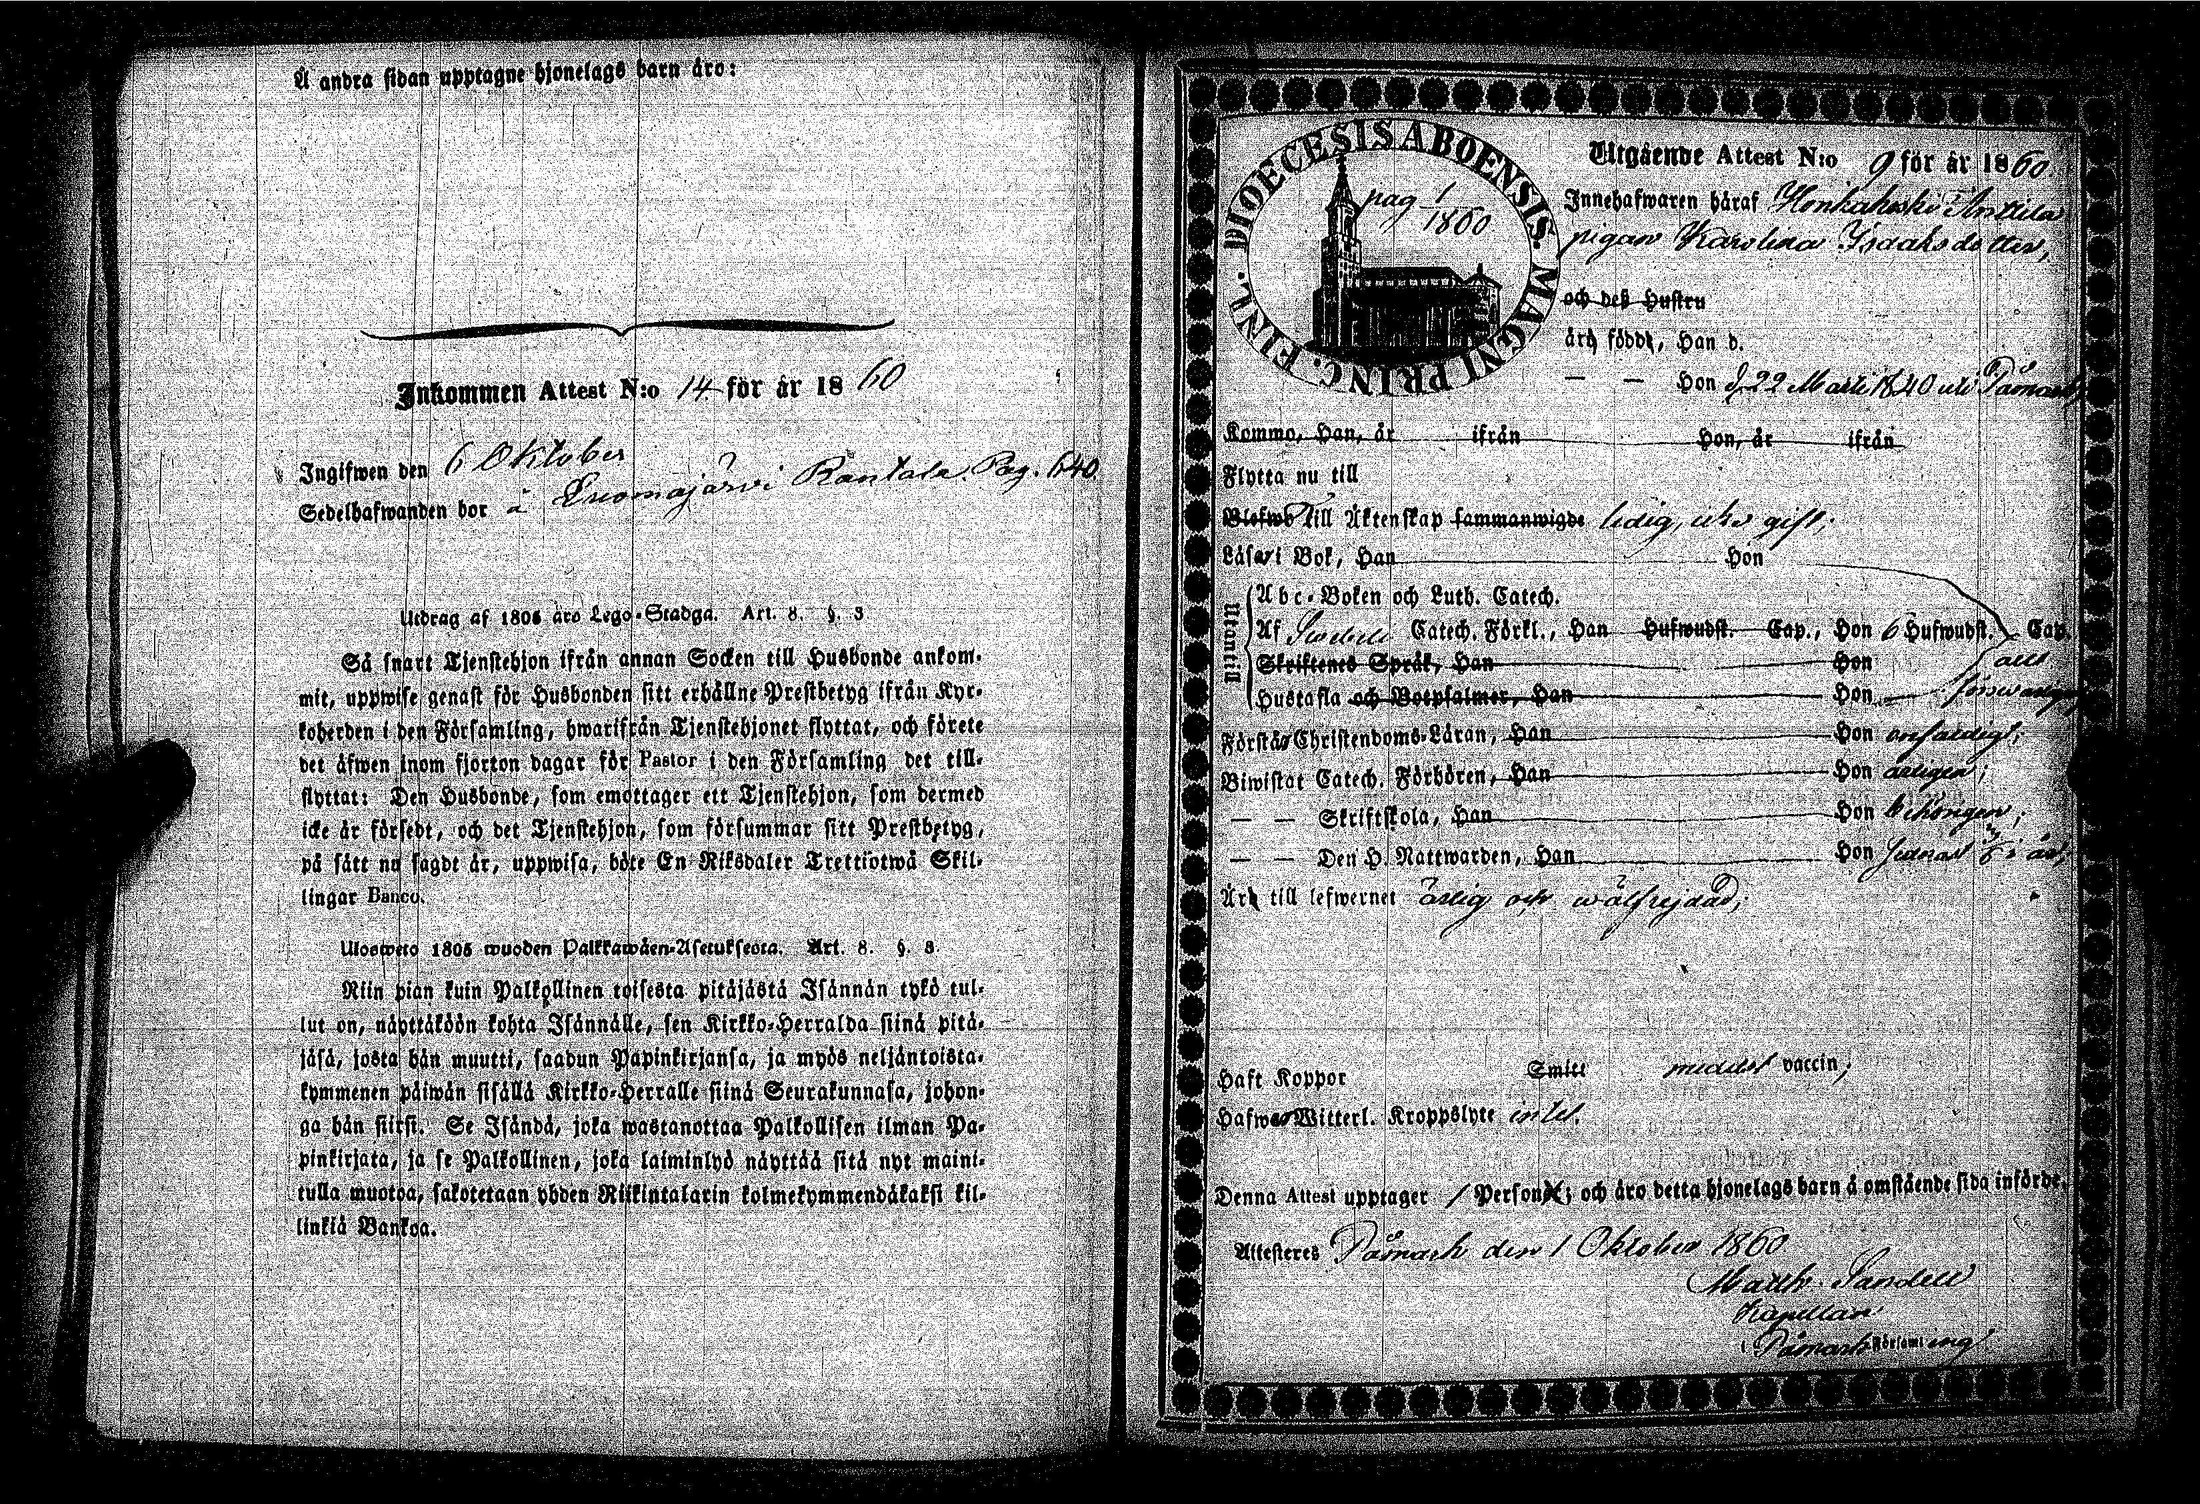 Å andra sidan upptagne hjonelags barn äro:
Inkommen Attest N:o 14 för år 1860
Ingifwen den 6 Oktober
Sedelhafwanden bor å Enomajärvi Rantala. Pag. 640.
Utdrag af 1805 års Lego-Stadga. Art. 8. §. 3
Så snart Tjenstehjon ifrån annan Socken till Husbonde ankom-
mit, uppwise genast för Husbonden sitt erhållne Prestbetyg ifrån Kyr-
koherden i den Församling, hwarifrån Tjenstehjonet flyttat, och förete
det äfwen inom fjorton dagar för Pastor i den Församling det till-
flyttat: Den Husbonde, som emottager ett Tjenstehjon, som dermed
icke är försedt, och det Tjenstehjon, som försummar sitt Prestbetyg,
på sätt nu sagdt är, uppwisa, böte En Riksdaler Trettiotwå Skil-
lingar Banco.
Ulosweto 1805 wuoden Palkkawäen-Asetuksesta. Art. 8. §. 3.
Niin pian kuin Palkollinen toisesta pitäjästä Isännän tykö tul-
lut on, näyttäköön kohta Isännälle, sen Kirkko-Herralda siinä pitä-
jäsä, josta hän muutti, saadun Papinkirjansa, ja myös neljäntoista-
kymmenen päiwän sisällä Kirkko-Herralle siinä Seurakunnasa, johon-
ga hän siirsi. Se Isändä, joka wastanottaa Palkollisen ilman Pa-
pinkirjata, ja se Palkollinen, joka laiminlyö näyttää sitä nyt maini-
tulla muotoa, sakotetaan yhden Riikintalarin kolmekymmendäkaksi kil-
linkiä Bankoa.
DIOECESIS ABOENSIS. MAGNI PRINC. FINL.
pag 1/1860
Utgående Attest N:o 9 för år 1860.
Innehafwaren häraf Honkakoski Anttila
pigan Karolina Isaksdotter,
och deß Hustru
äro födde, Han d.
— — Hon d. 22 Marti 1840 uti Påmark;
Komne, Han, år ifrån Hon, år ifrån
Flytta nu till
Blefwo Till Äktenskap sammanwigde ledig, icke gift;
Läser i Bok, Han Hon
Utantill
Abc-Boken och Luth. Catech.
Af Svebelii Catech. Förkl., Han Hufwudst. Cap., Hon 6 Hufwudst. Cap.
Skriftenes Språk, Han Hon allt
Hustafla och Botpsalmer, Han Hon försvarligen
Förstår Christendoms-Läran, Han Hon enfaldigt;
Biwistat Catech. Förhören, Han Hon årligen;
— — Skriftskola, Han Hon behörigen;
— — Den H. Nattwarden, Han Hon i år;
Är till lefwernet ärlig och wälfrejdad;
Haft Koppor Smitt medelst vaccin;
Hafwer Witterl. Kroppslyte intet.
Denna Attest upptager 1 Person; och äro detta hjonelags barn å omstående sida införde.
Attesteres Påmark den 1 Oktober 1860
Matth. Sandell
Kapellan
i Påmark Församling.